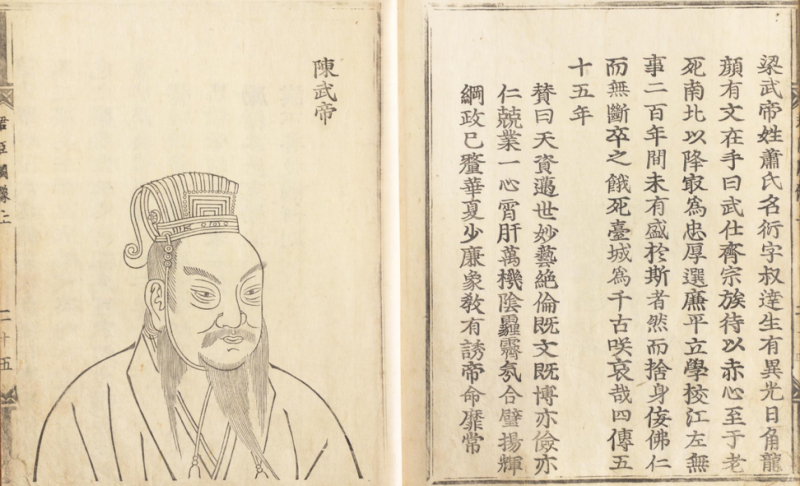 梁武帝姓蕭氏名衍字叔達生有異光日角龍
顔有文在手曰武仕齊宗族待以赤心至于老
死南北以降㝡為忠厚選廉平立學校江左無
事二百年間未有盛於斯者然而捨身佞佛仁
而無斷卒之餓死臺城為千古咲哀哉四傳五
十五年
賛曰天資邁世妙藝絶倫既文既博亦儉亦
仁兢業一心宵肝萬機陰霾霽氛合璧揚輝
綱政已釐華夏少康象敎有誘帝命靡常
陳武帝
君臣圖像上
二十五